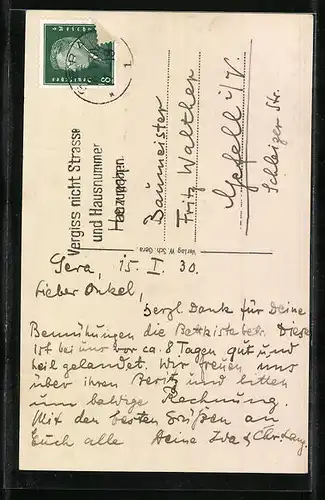 Deutsches
8
1
Vergiss nicht Strasse
und Hausnummer
anzugeben.
Baumeister
Fritz Walther
Gefell i/V.
Schleizer Str.
Verlag W. Sch. Gera.
Gera, 15. I. 30.
Lieber Onkel,
herzl. Dank für Deine
Bemühungen die Bettkiste betr. Diese
ist bei uns vor ca. 8 Tagen gut und
heil gelandet. Wir freuen uns
über ihren Besitz und bitten
um baldige Rechnung.
Mit den besten Grüßen an
Euch alle Deine Ida &